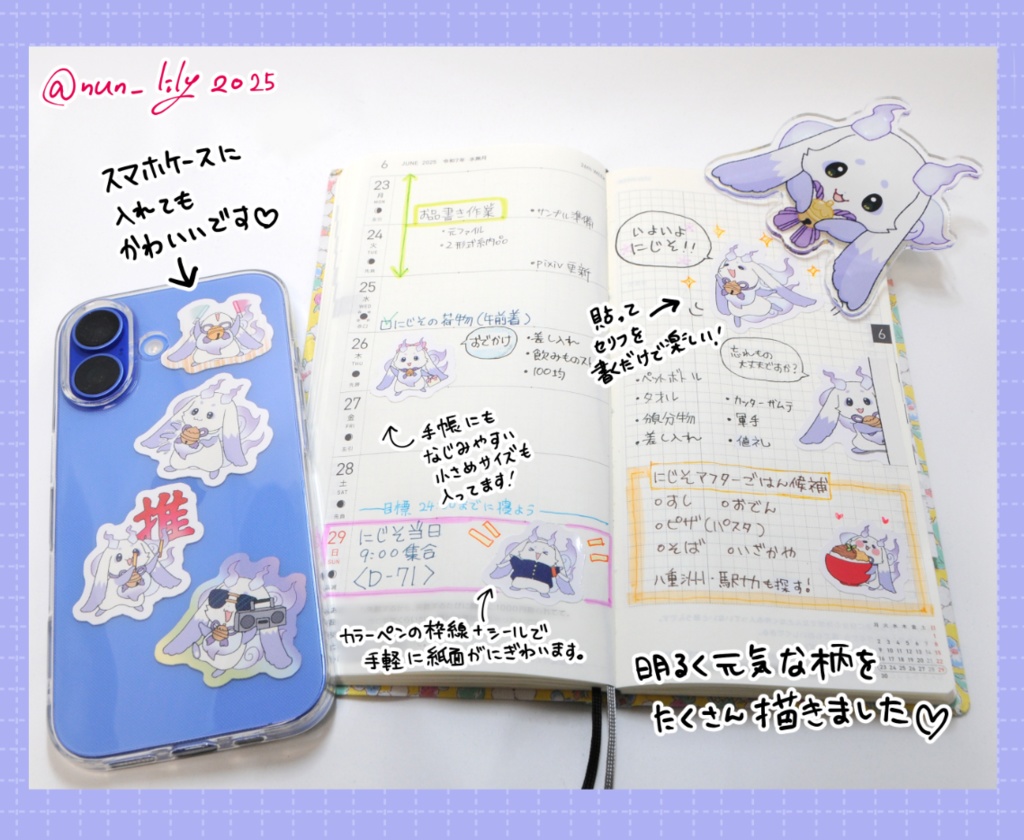 @nun_lily 2025
スマホケースに
入れても
かわいいです♡
推
6 JUNE 2025
23
月
お品書き作業
・元ファイル
・サンプル準備
24
火
・pixiv更新
25
水
にじその荷物(午前着)
26
木
おでかけ
・差し入れ
・飲みもの
・100均
27
金
手帳にも
なじみやすい
小さめサイズも
入ってます!
28
土
SAT
目標 24
29
日
SUN
にじそ当日
9:00集合
〈D-71〉
カラーペンの枠線+シールで
手軽に紙面がにぎわいます。
いよいよ
にじそ!!
貼って
セリフを
書くだけで楽しい!
6
忘れもの
大丈夫ですか?
・ペットボトル
・タオル
・カッターガムテ
・軍手
・差し入れ
・値札
にじそアフターごはん候補
○すし ○おでん
○ピザ(パスタ)
○そば ○いざかや
八重洲・駅ナカも探す!
明るく元気な柄を
たくさん描きました♡